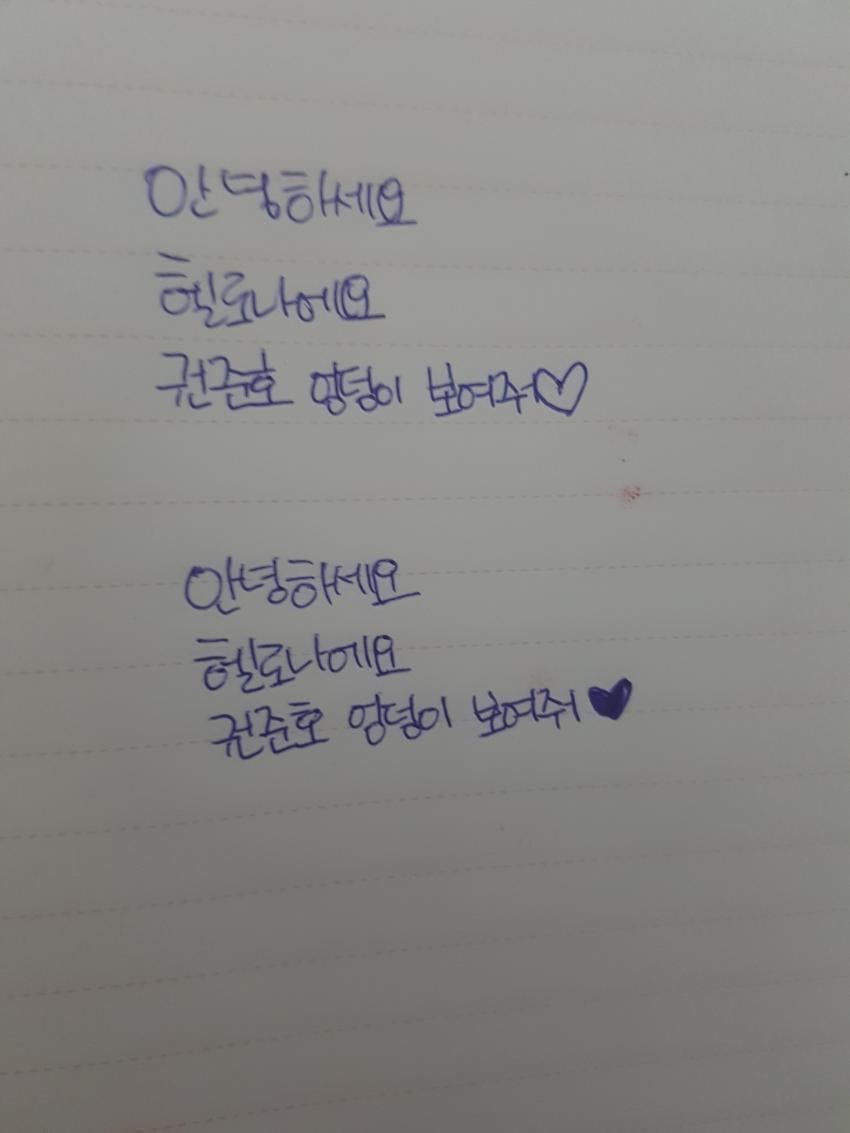 안녕하세요
헬로나에요
권준호 엉덩이 보여주♡
안녕하세요
헬로나에요
권준호 엉덩이 보여줘♥